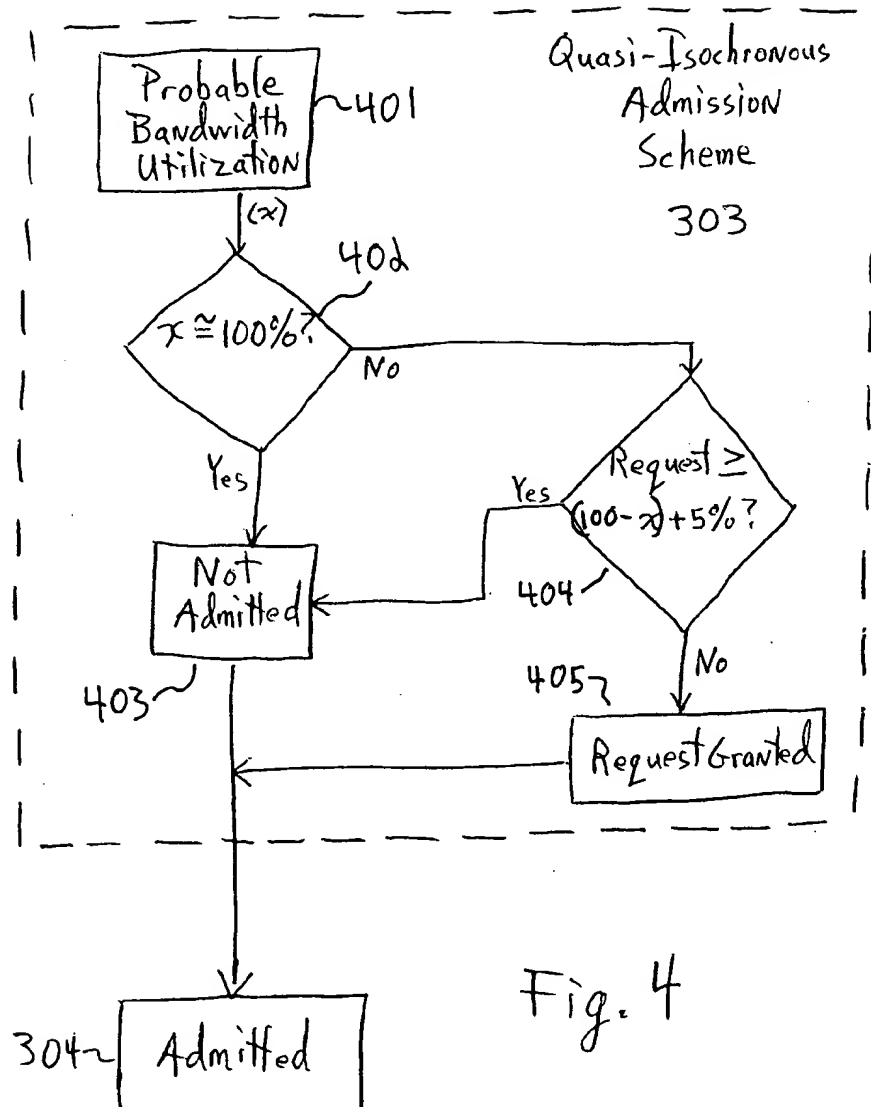 Probable
Bandwidth
Utilization
401
Quasi-Isochronous
Admission
Scheme
303
(x)
402
x ≅ 100%?
No
Request ≥
(100-x)+5%?
Yes
Yes
Not
Admitted
404
403
No
405
Request Granted
304
Admitted
Fig. 4